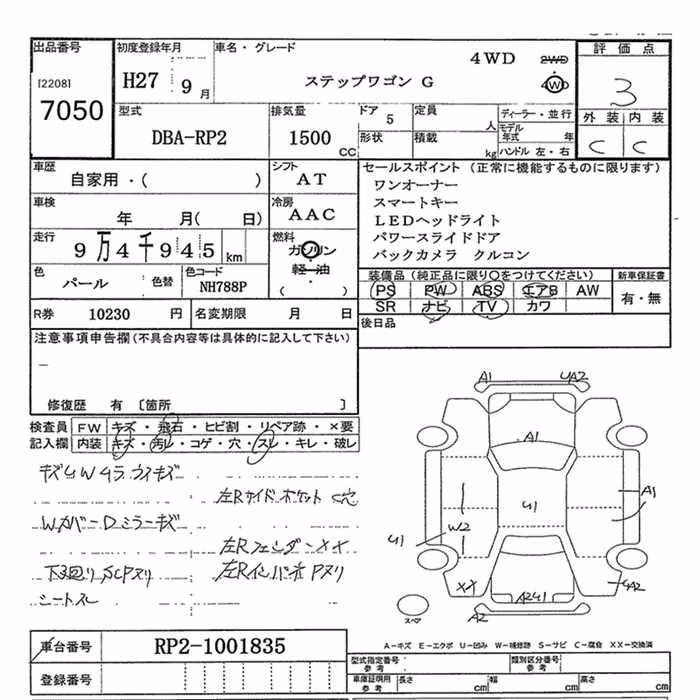 出品番号
[2208]
7050
初度登録年月
H27 9月
車名・グレード
ステップワゴン G
4WD
2WD
4WD
評価点
3
外装 内装
C C
型式
DBA-RP2
排気量
1500
CC
ドア
5
形状
定員
人
積載
kg
ディーラー・並行
モデル年式 年
ハンドル 左・右
車歴
自家用・( )
シフト
AT
車検
年 月( 日)
冷房
AAC
走行
9万4千945 km
燃料
ガソリン
軽・油
( )
色
パール
色替
色コード
NH788P
R券 10230 円
名変期限 月 日
セールスポイント (正常に機能するものに限ります)
ワンオーナー
スマートキー
LEDヘッドライト
パワースライドドア
バックカメラ クルコン
装備品 (純正品に限り○をつけてください)
PS PW ABS エアB AW
SR ナビ TV カワ
新車保証書
有・無
後日品
注意事項申告欄 (不具合内容等は具体的に記入して下さい)
–
修復歴 有 〔箇所 〕
検査員記入欄
FW キズ・飛石・ヒビ割・リペア跡・×要
内装 キズ・汚レ・コゲ・穴・スレ・キレ・破レ
キズUWムラ ウスキズ
左Rサイドポケット C穴
WカバーDミラーキズ
左Rフェンダー××
下廻り Pヌリ
左Rインパネ Pヌリ
シートスレ
A1
UA2
A1
U1
A1
W2
U1
XX
UA2
A2U1
A2
スペア
A-キズ E-エクボ U-凹み W-補修跡 S-サビ C-腐食 XX-交換済
車台番号
RP2-1001835
登録番号
型式指定番号
参考
類別区分番号
参考
車庫証明用
参考
長さ cm
幅 cm
高さ cm